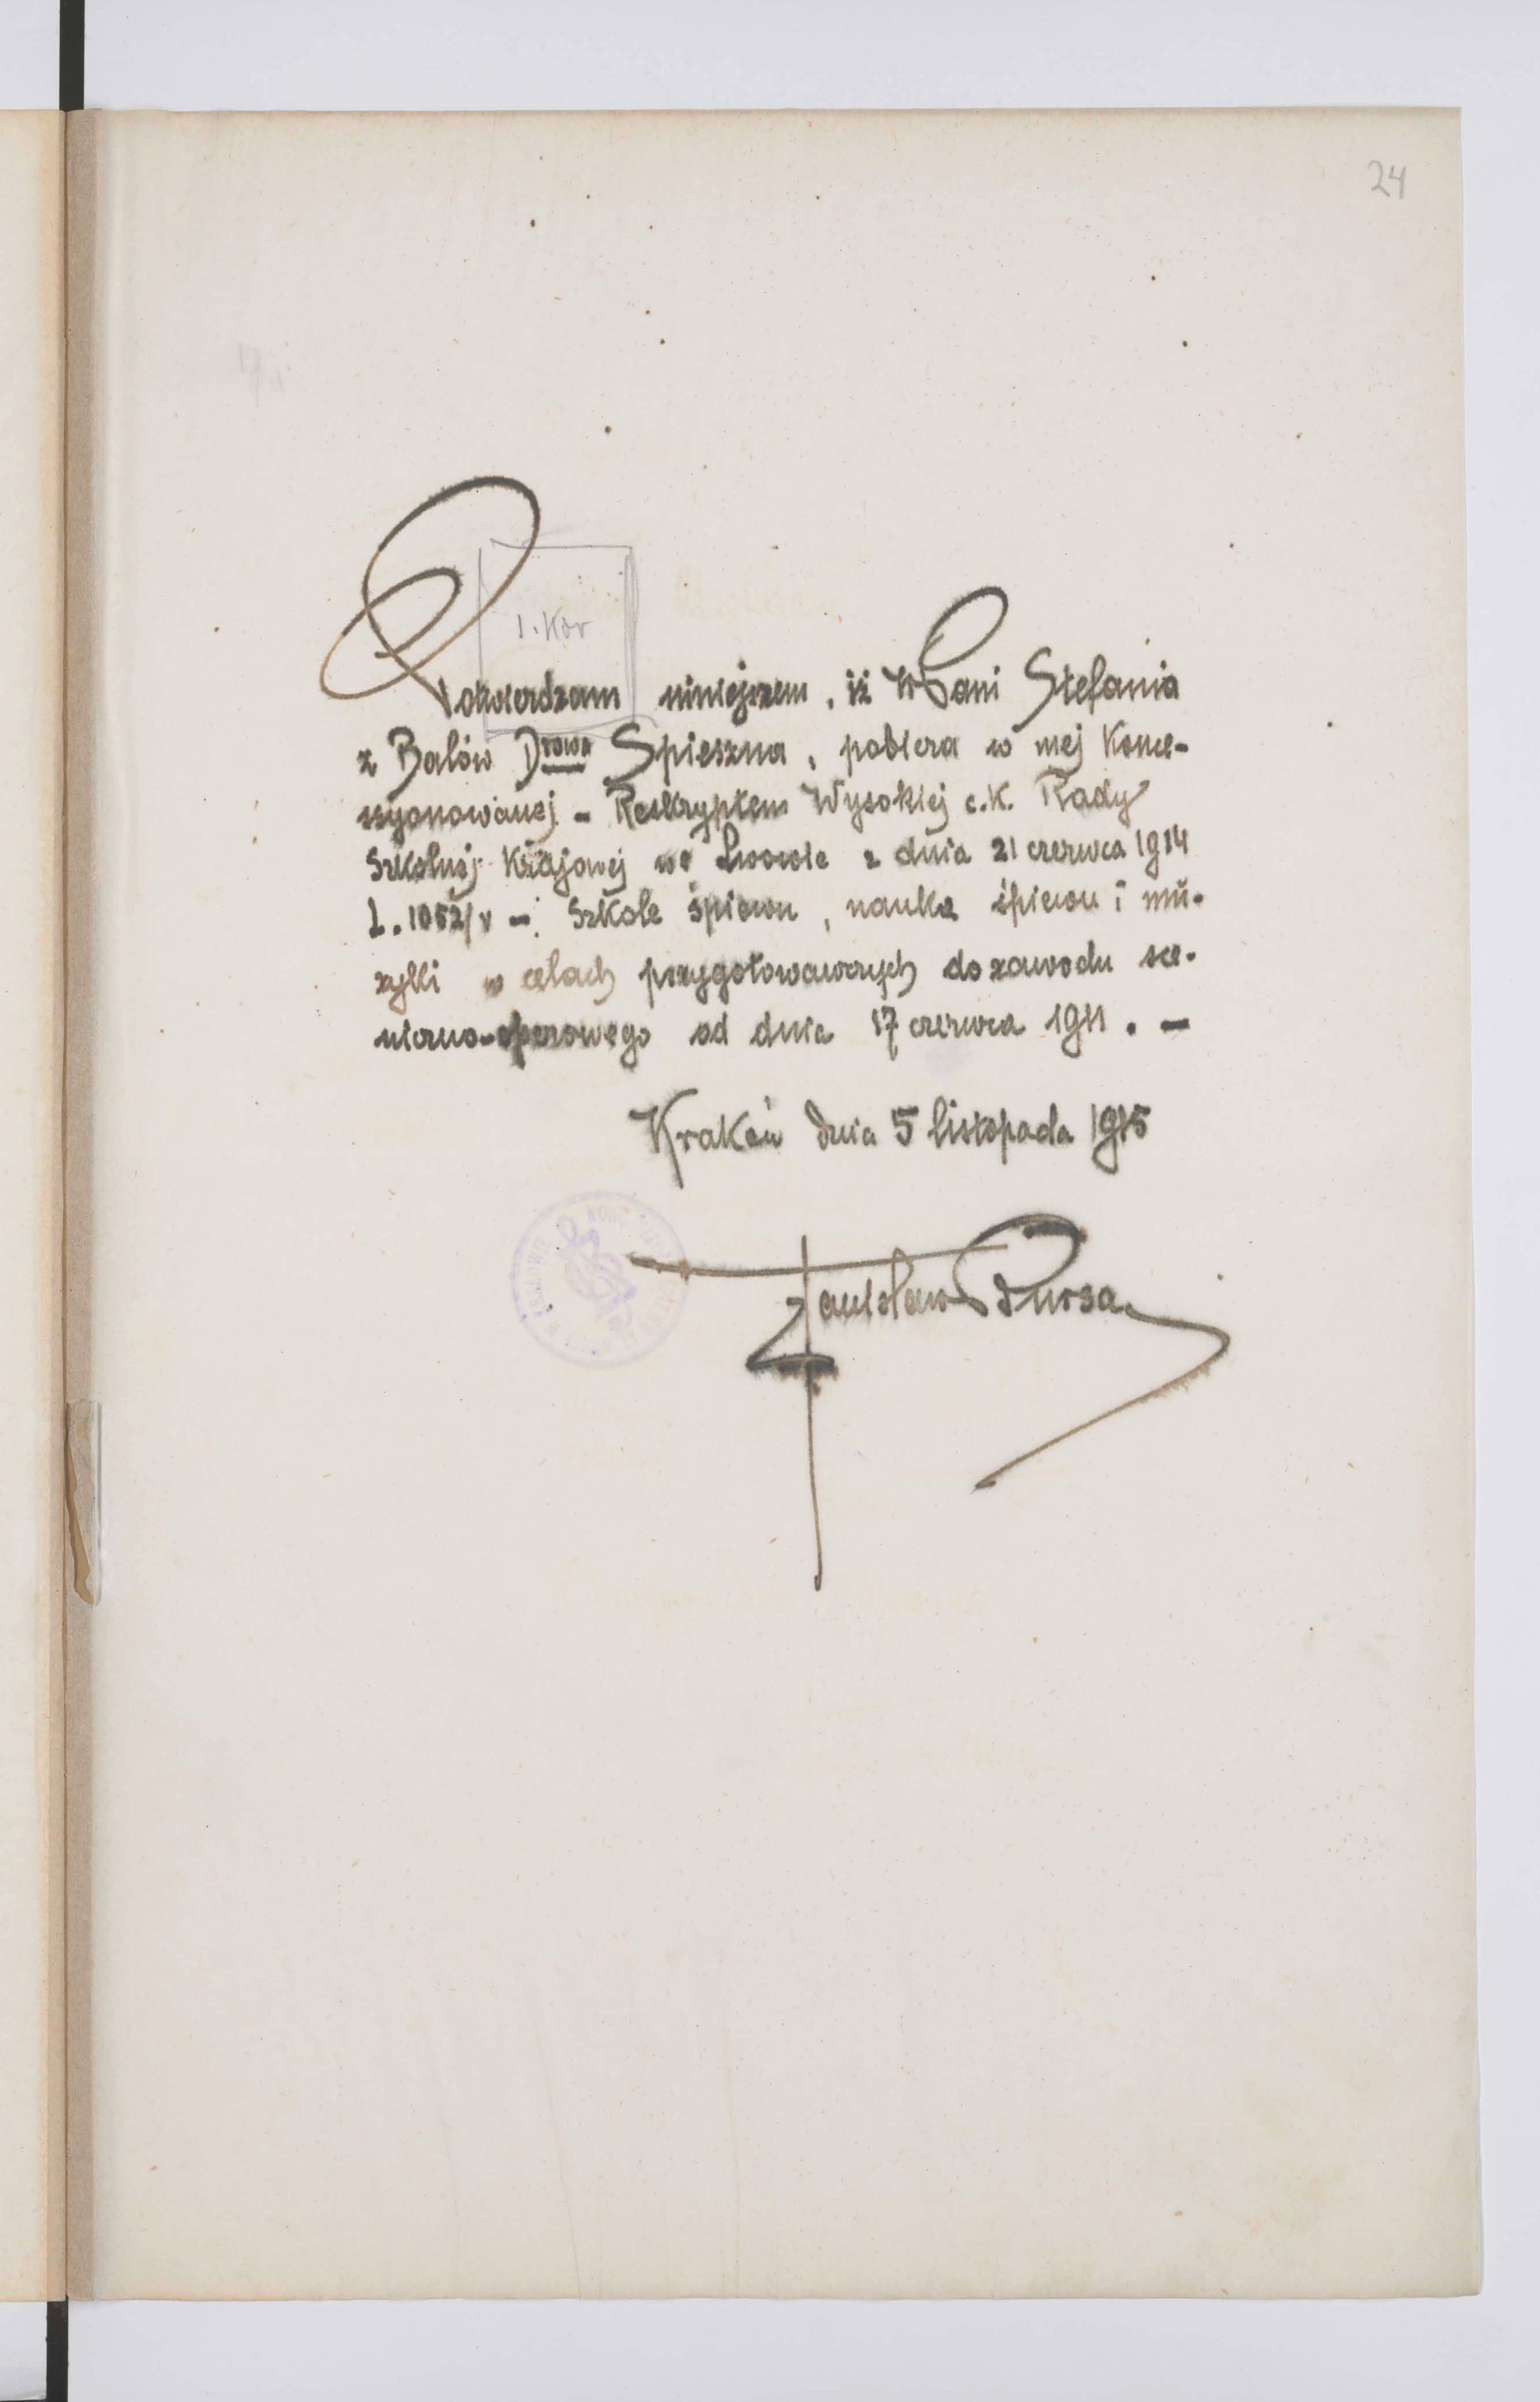 24
1. Kor
Potwierdzam niniejszem, iż WPani Stefania
z Balów Drowa Spieszna, pobiera w mej konce-
ssyonowanej - Reskryptem Wysokiej c.k. Rady
Szkolnej Krajowej we Lwowie z dnia 21 czerwca 1914
L. 1052/V - Szkole śpiewu, naukę śpiewu i mu-
zyki w celach przygotowawczych do zawodu sce-
niczno-operowego od dnia 17 czerwca 1911. -
Kraków dnia 5 listopada 1915
Stanisław Bursa